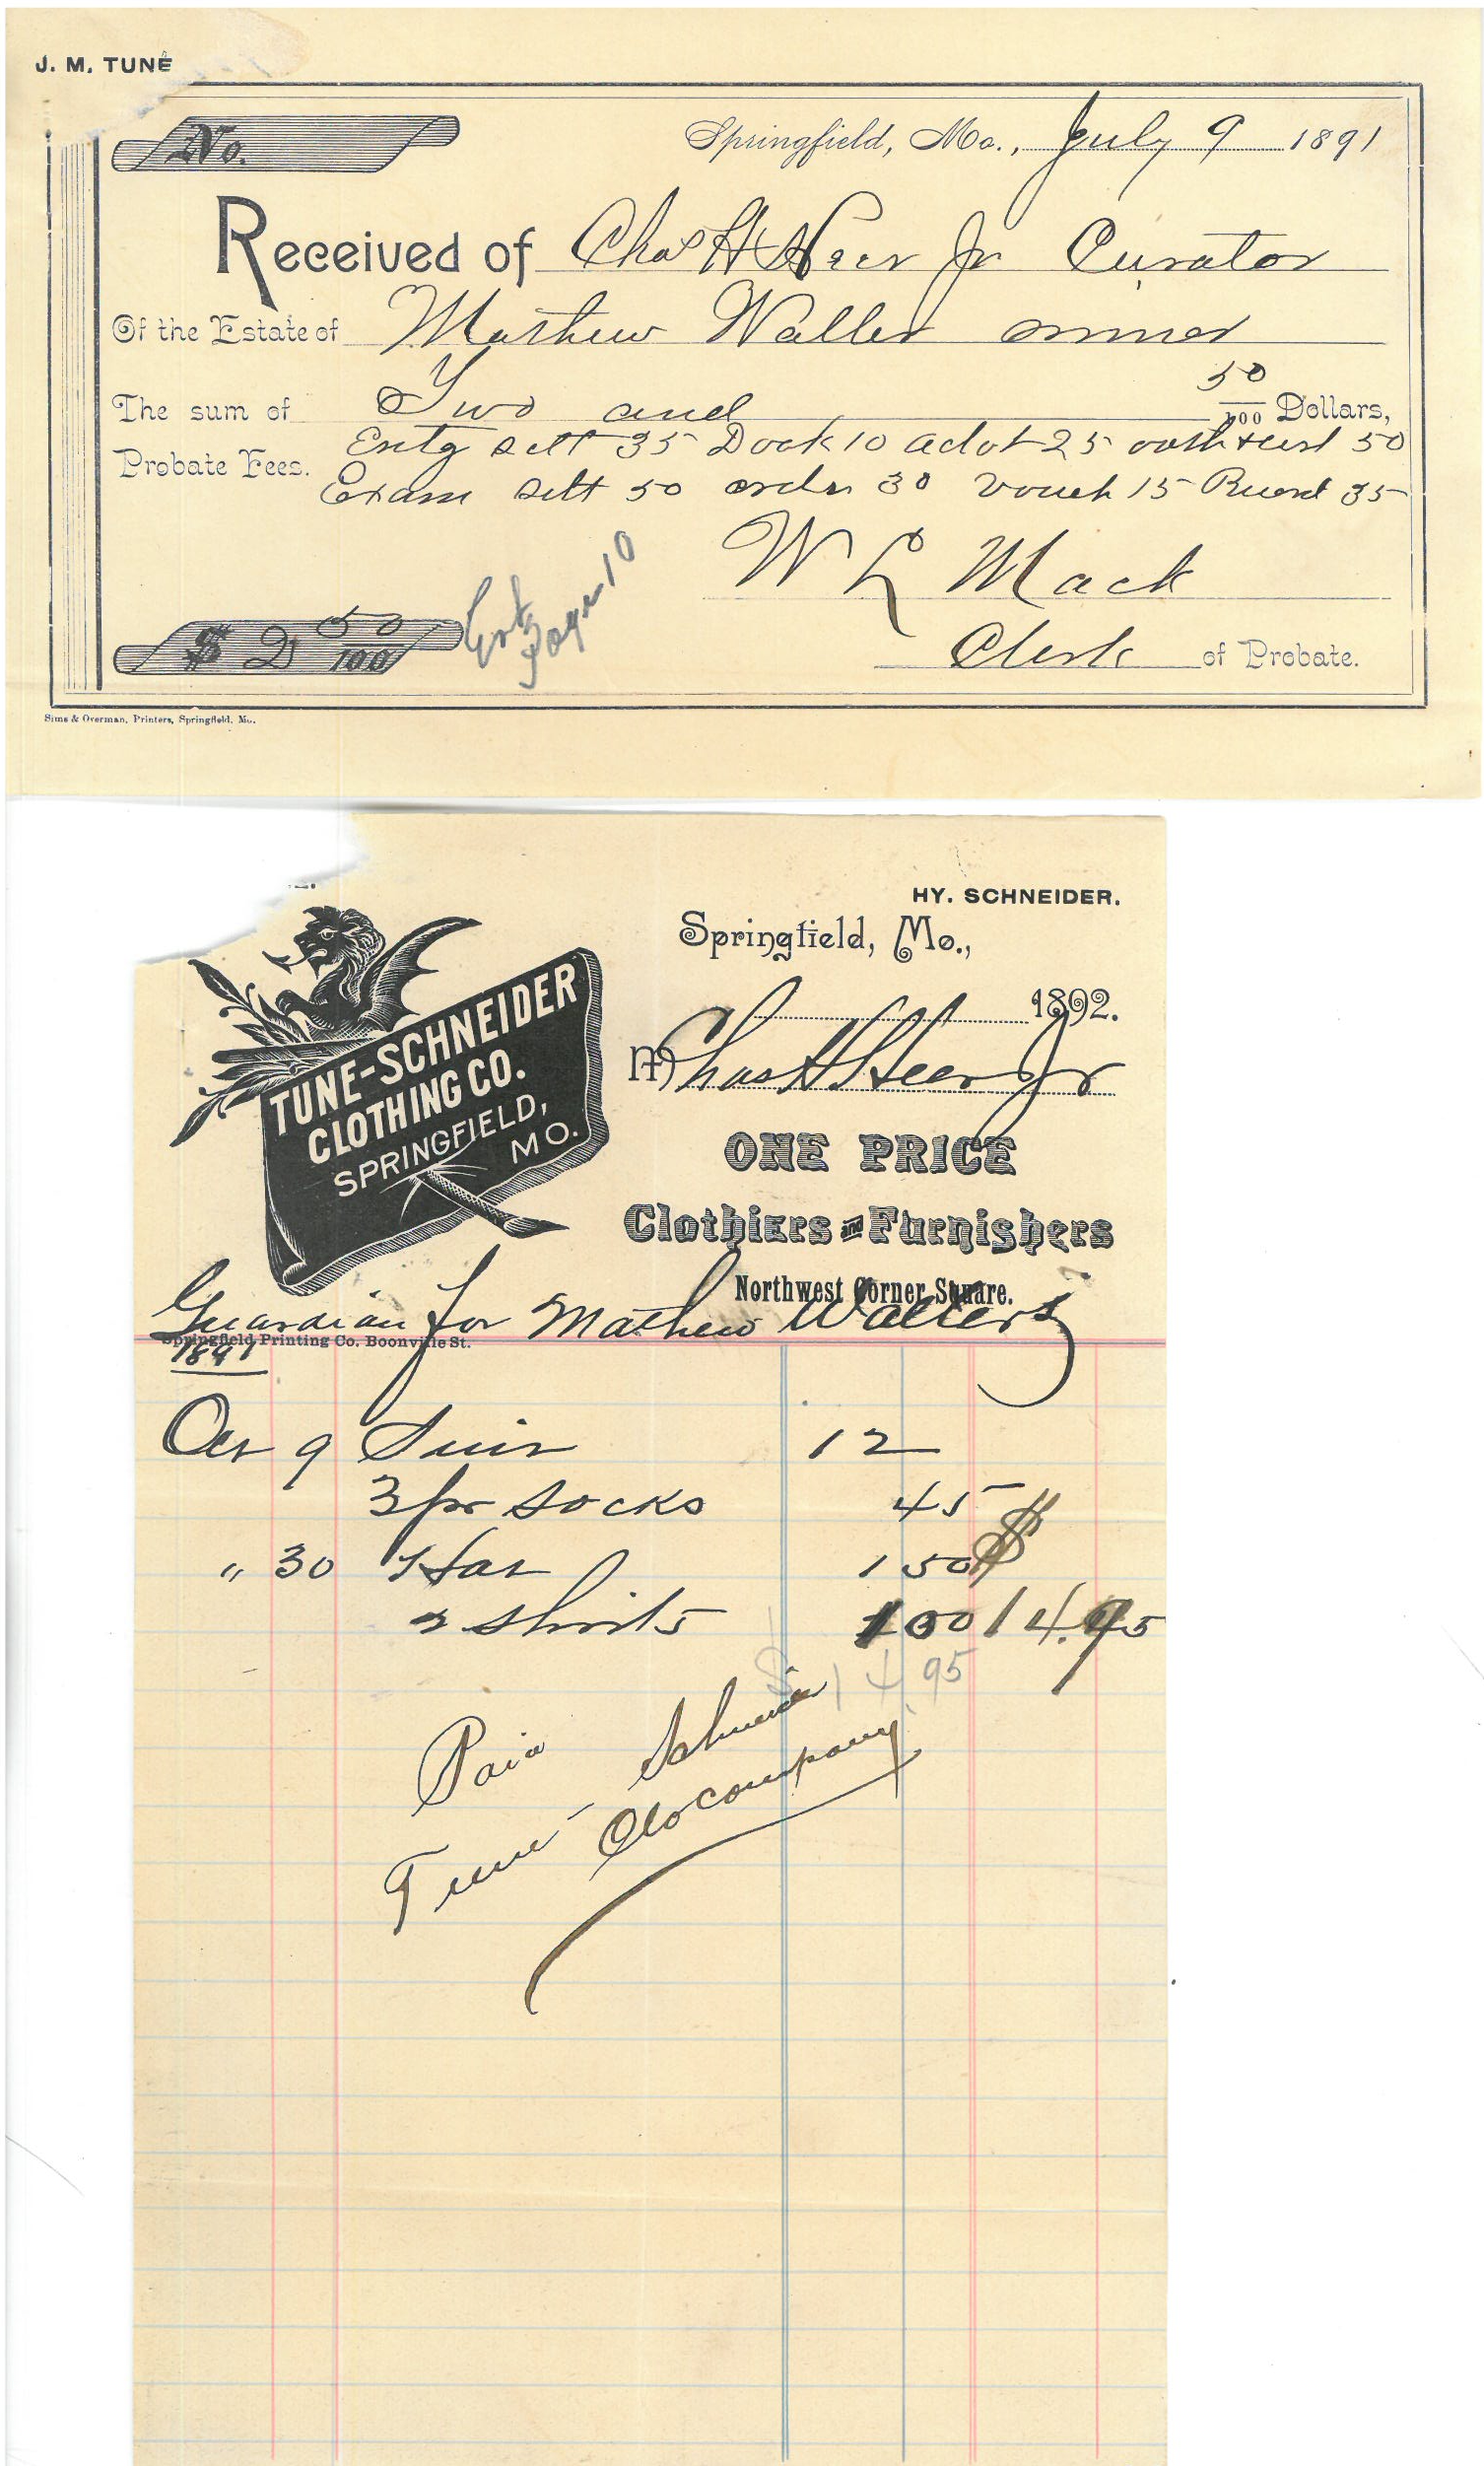 J. M. TUNE
No.
Springfield, Mo., July 9 1891
Received of Chas H Heer Jr Curator
Of the Estate of Mathew Waller minor
The sum of Two and 50/100 Dollars,
Probate Fees. Entg Sett 35 Dock 10 advt 25 oath & cert 50
Exam Sett 50 order 30 vouch 15 Record 35
W L Mack
Clerk of Probate.
$ 2 50/100
Ent
Page 10
Sims & Overman, Printers, Springfield, Mo.
HY. SCHNEIDER.
Springfield, Mo.,
1892.
M Chas H Heer Jr
TUNE-SCHNEIDER
CLOTHING CO.
SPRINGFIELD,
MO.
ONE PRICE
Clothiers and Furnishers
Northwest Corner Square.
Guardian for Mathew Wallers
Springfield Printing Co. Boonville St.
1891
Oct 9 Suit 12
3 pr Socks 45
" 30 1 Hat 1 50 $
2 Shirts 1 00 14.95
$ 14 95
Paid
Tune Schneider
Clo company